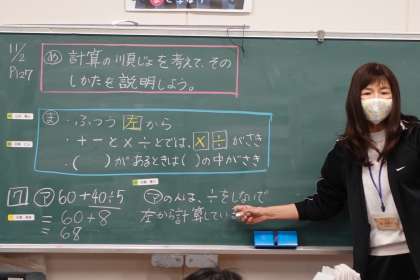 11/2
P127
め 計算の順じょを考えて、その
しかたを説明しよう。
ま ・ふつう 左 から
・+ーと×÷とでは、×÷がさき
・( )があるときは( )の中がさき
7 ア 60+40÷5
= 60+8
= 68
アの人は、÷をしないで
左から計算してい